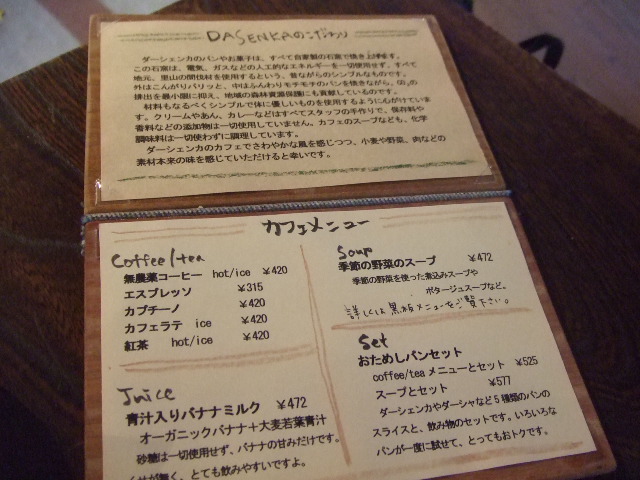 DASENKAのこだわり
ダーシェンカのパンやお菓子は、すべて自家製の石窯で焼き上げます。
この石窯は、電気、ガスなどの人工的なエネルギーを一切使用せず、すべて
地元、里山の間伐材を使用するという、昔ながらのシンプルなものです。
外はこんがりパリッと、中はふんわりモチモチのパンを焼きながら、CO₂の
排出を最小限に抑え、地域の森林資源保護にも貢献しているのです。
材料もなるべくシンプルで体に優しいものを使用するように心がけていま
す。クリームやあん、カレーなどはすべてスタッフの手作りで、保存料や
香料などの添加物は一切使用していません。カフェのスープなども、化学
調味料は一切使わずに調理しています。
ダーシェンカのカフェでさわやかな風を感じつつ、小麦や野菜、肉などの
素材本来の味を感じていただけると幸いです。
カフェメニュー
Coffee/tea
無農薬コーヒー hot/ice ¥420
エスプレッソ ¥315
カプチーノ ¥420
カフェラテ ice ¥420
紅茶 hot/ice ¥420
Juice
青汁入りバナナミルク ¥472
オーガニックバナナ+大麦若葉青汁
砂糖は一切使用せず、バナナの甘みだけです。
くせが無く、とても飲みやすいですよ。
Soup
季節の野菜のスープ ¥472
季節の野菜を使った煮込みスープや
ポタージュスープなど。
詳しくは黒板メニューをご覧下さい。
Set
おためしパンセット
coffee/tea メニューとセット ¥525
スープとセット ¥577
ダーシェンカやダーシャなど5種類のパンの
スライスと、飲み物のセットです。いろいろな
パンが一度に試せて、とってもおトクです。